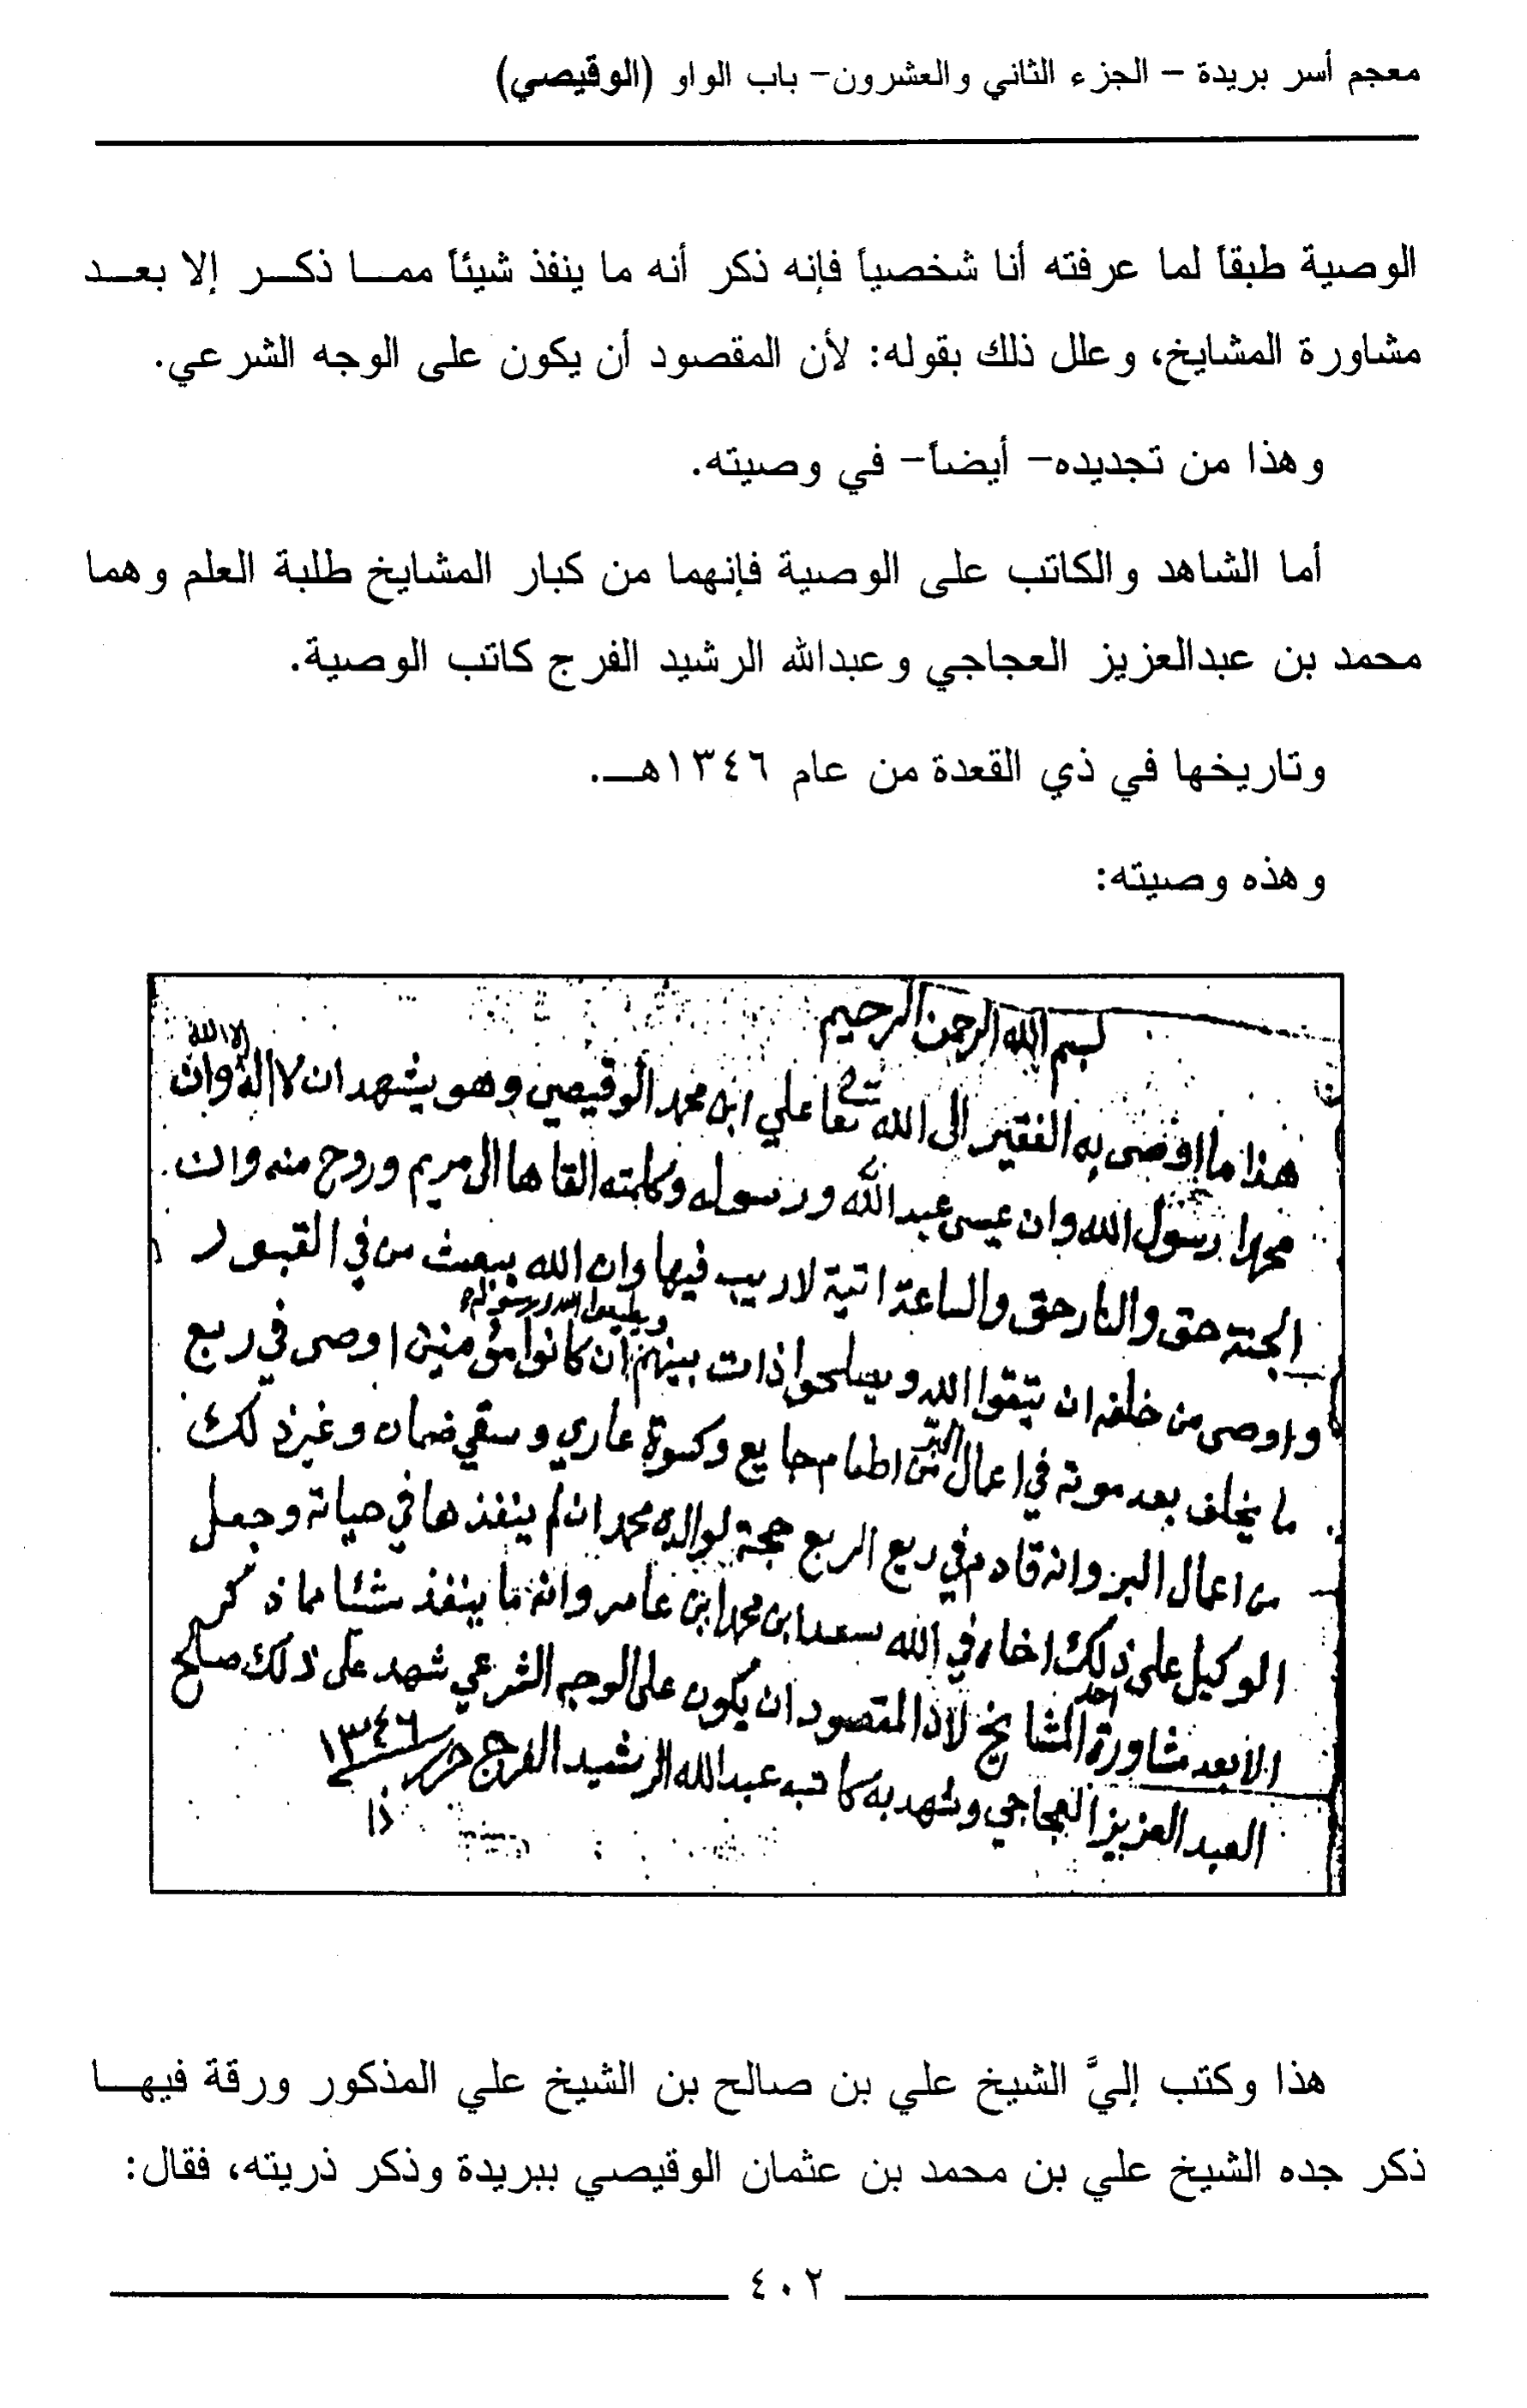 معجم أسر بريدة – الجزء الثاني والعشرون– باب الواو (الوقيصي)
الوصية طبقاً لما عرفته أنا شخصياً فإنه ذكر أنه ما ينفذ شيئاً ممـا ذكـر إلا بعـد
مشاورة المشايخ، وعلل ذلك بقوله: لأن المقصود أن يكون على الوجه الشرعي.
وهذا من تجديده– أيضاً– في وصيته.
أما الشاهد والكاتب على الوصية فإنهما من كبار المشايخ طلبة العلم وهما
محمد بن عبدالعزيز العجاجي وعبدالله الرشيد الفرج كاتب الوصية.
وتاريخها في ذي القعدة من عام ١٣٤٦هـ.
وهذه وصيته:
بسم الله الرحمن الرحيم
هذا ما اوصى به الفقير الى الله تعا علي ابن محمد الوقيصي وهو يشهد ان لا اله الا الله وان
محمدا رسول الله وان عيسى عبد الله ورسوله وكلمته القاها الى مريم وروح منه وان
الجنة حق والنار حق والساعة اتية لا ريب فيها وان الله يبعث من في القبور
واوصى من خلفه ان يتقوا الله ويصلحوا ذات بينهم ويطيعوا الله ورسوله ان كانوا مؤمنين اوصى في ربع
ما يخلف بعد موته في اعمال البر من اطعام جايع وكسوة عاري وسقي ضمان وغير ذلك
من اعمال البر وانه قادم في ربع الربع حجة لوالده محمد ان لم ينفذها في حياته وجعل
الوكيل على ذلك اخاه في الله سعد ابن محمد ابن عامر وانه ما ينفذ شئا مما ذكر
الا بعد مشاورة احد المشايخ لان المقصود ان يكون على الوجه الشرعي شهد على ذلك صالح
العبد العزيز العجاجي وشهد به كاتبه عبد الله الرشيد الفرج حرر ١٣٤٦
ذا
هذا وكتب إليَّ الشيخ علي بن صالح بن الشيخ علي المذكور ورقة فيهـا
ذكر جده الشيخ علي بن محمد بن عثمان الوقيصي ببريدة وذكر ذريته، فقال:
٤٠٢